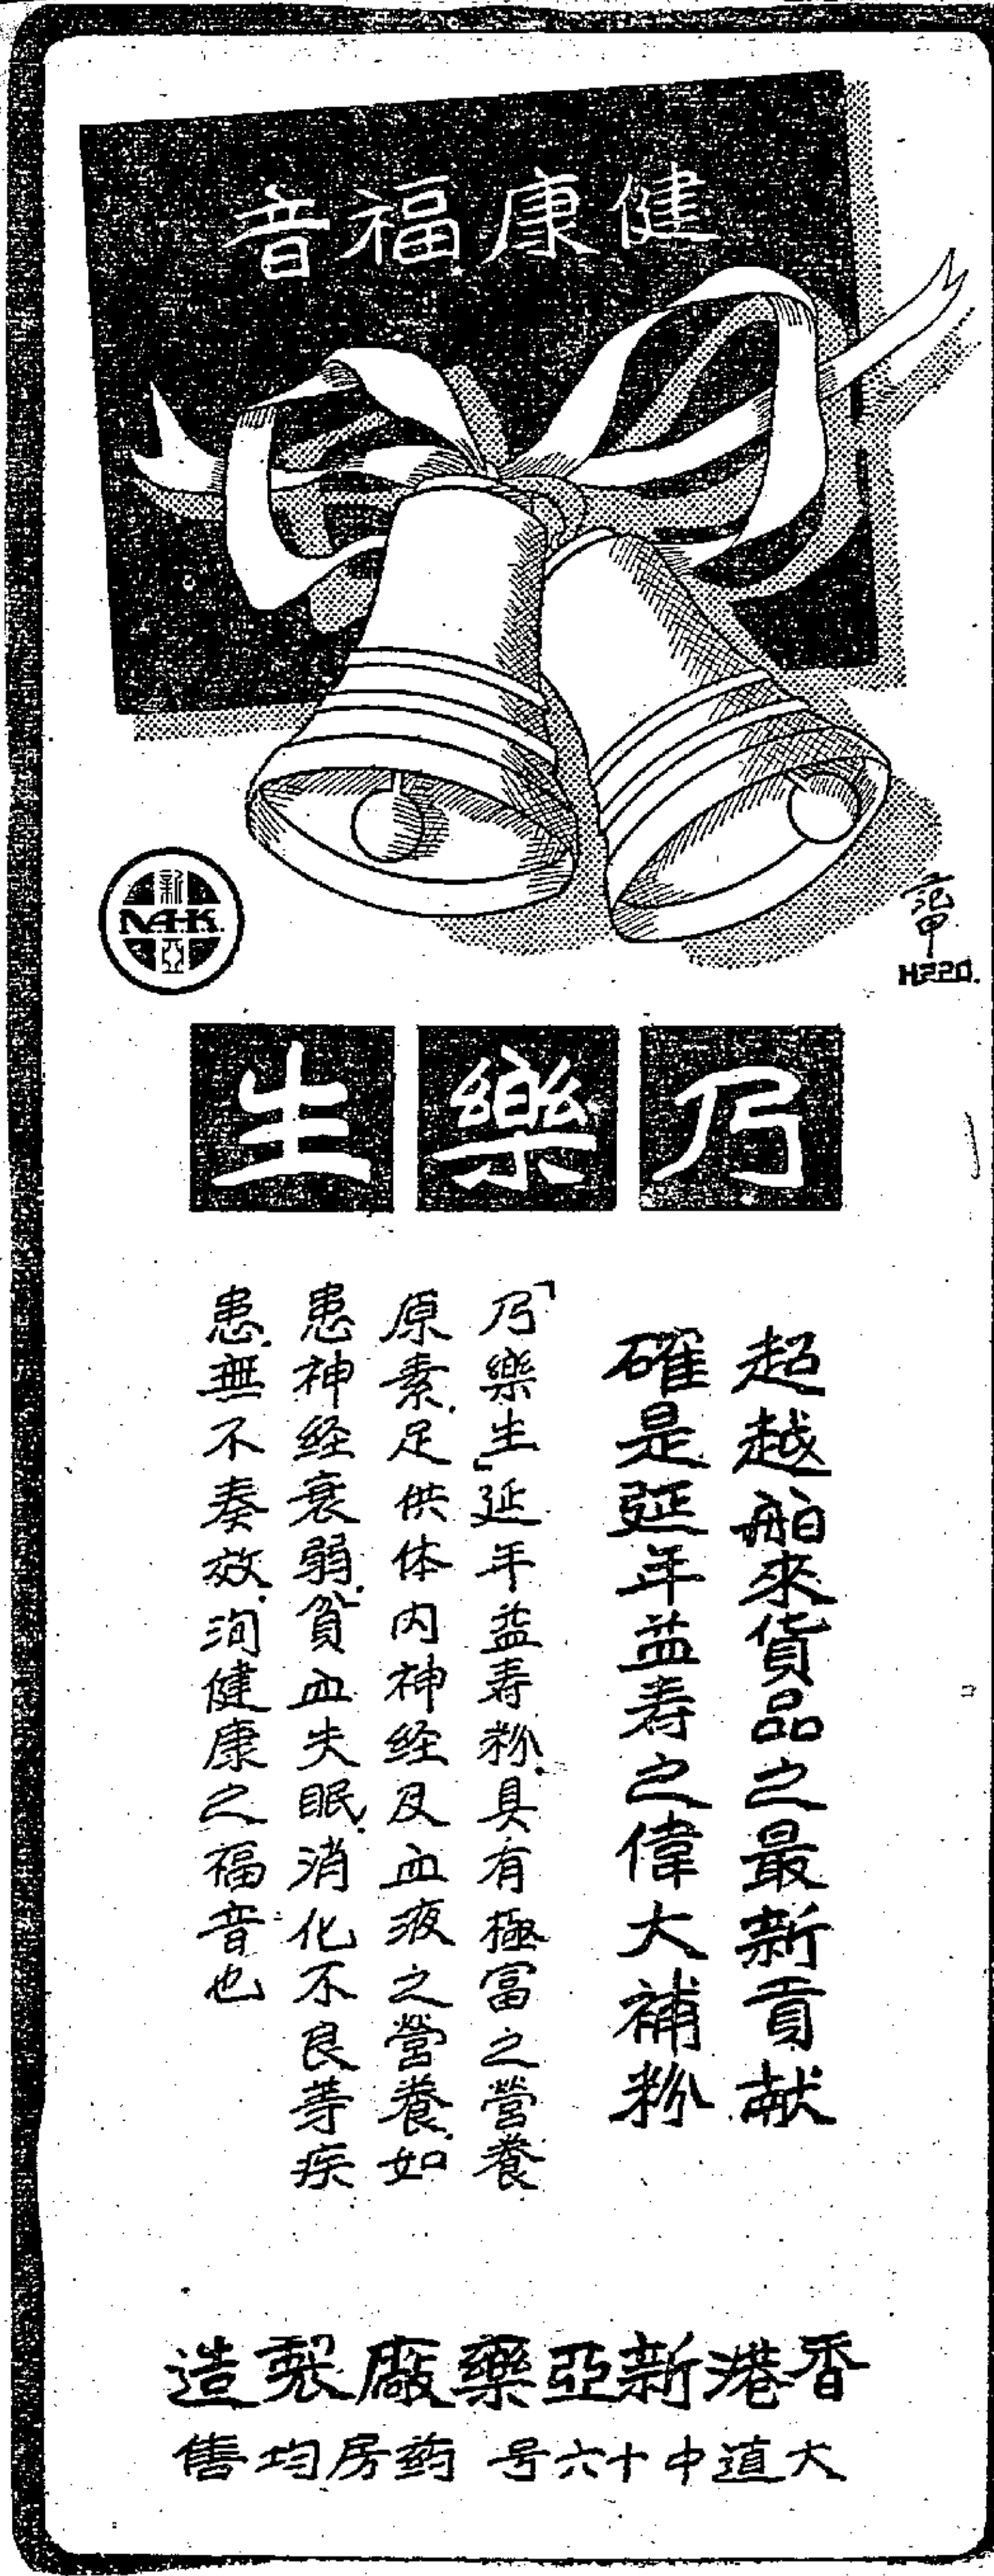 健康福音
新
N.A.K.
亞
H220.
乃樂生
超越舶來貨品之最新貢献
確是延年益寿之偉大補粉
「乃樂生」延年益寿粉、具有極富之營養
原素、足供体内神经及血液之營養、如
患神经衰弱、貧血失眠、消化不良等疾
患、無不奏效、洵健康之福音也
香港新亞藥廠製造
大道中十六号 药房均售